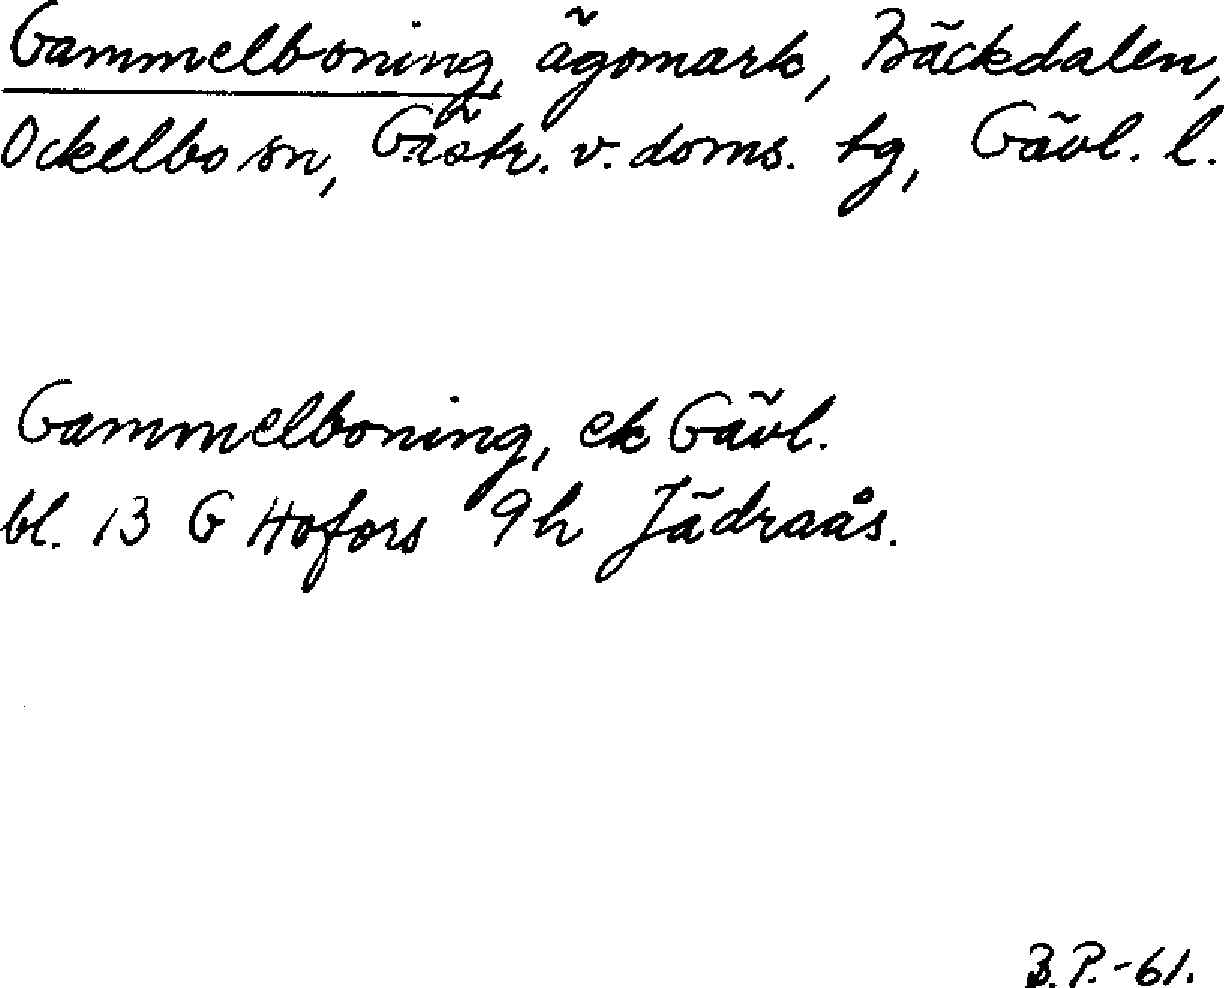 Gammelboning, ägomark, Bäckdalen,
Ockelbo sn, Gästr. v. doms. tg, Gävl. l.
Gammelboning, ek Gävl.
bl. 13 G Hofors 9h Jädraås.
B.P.-61.